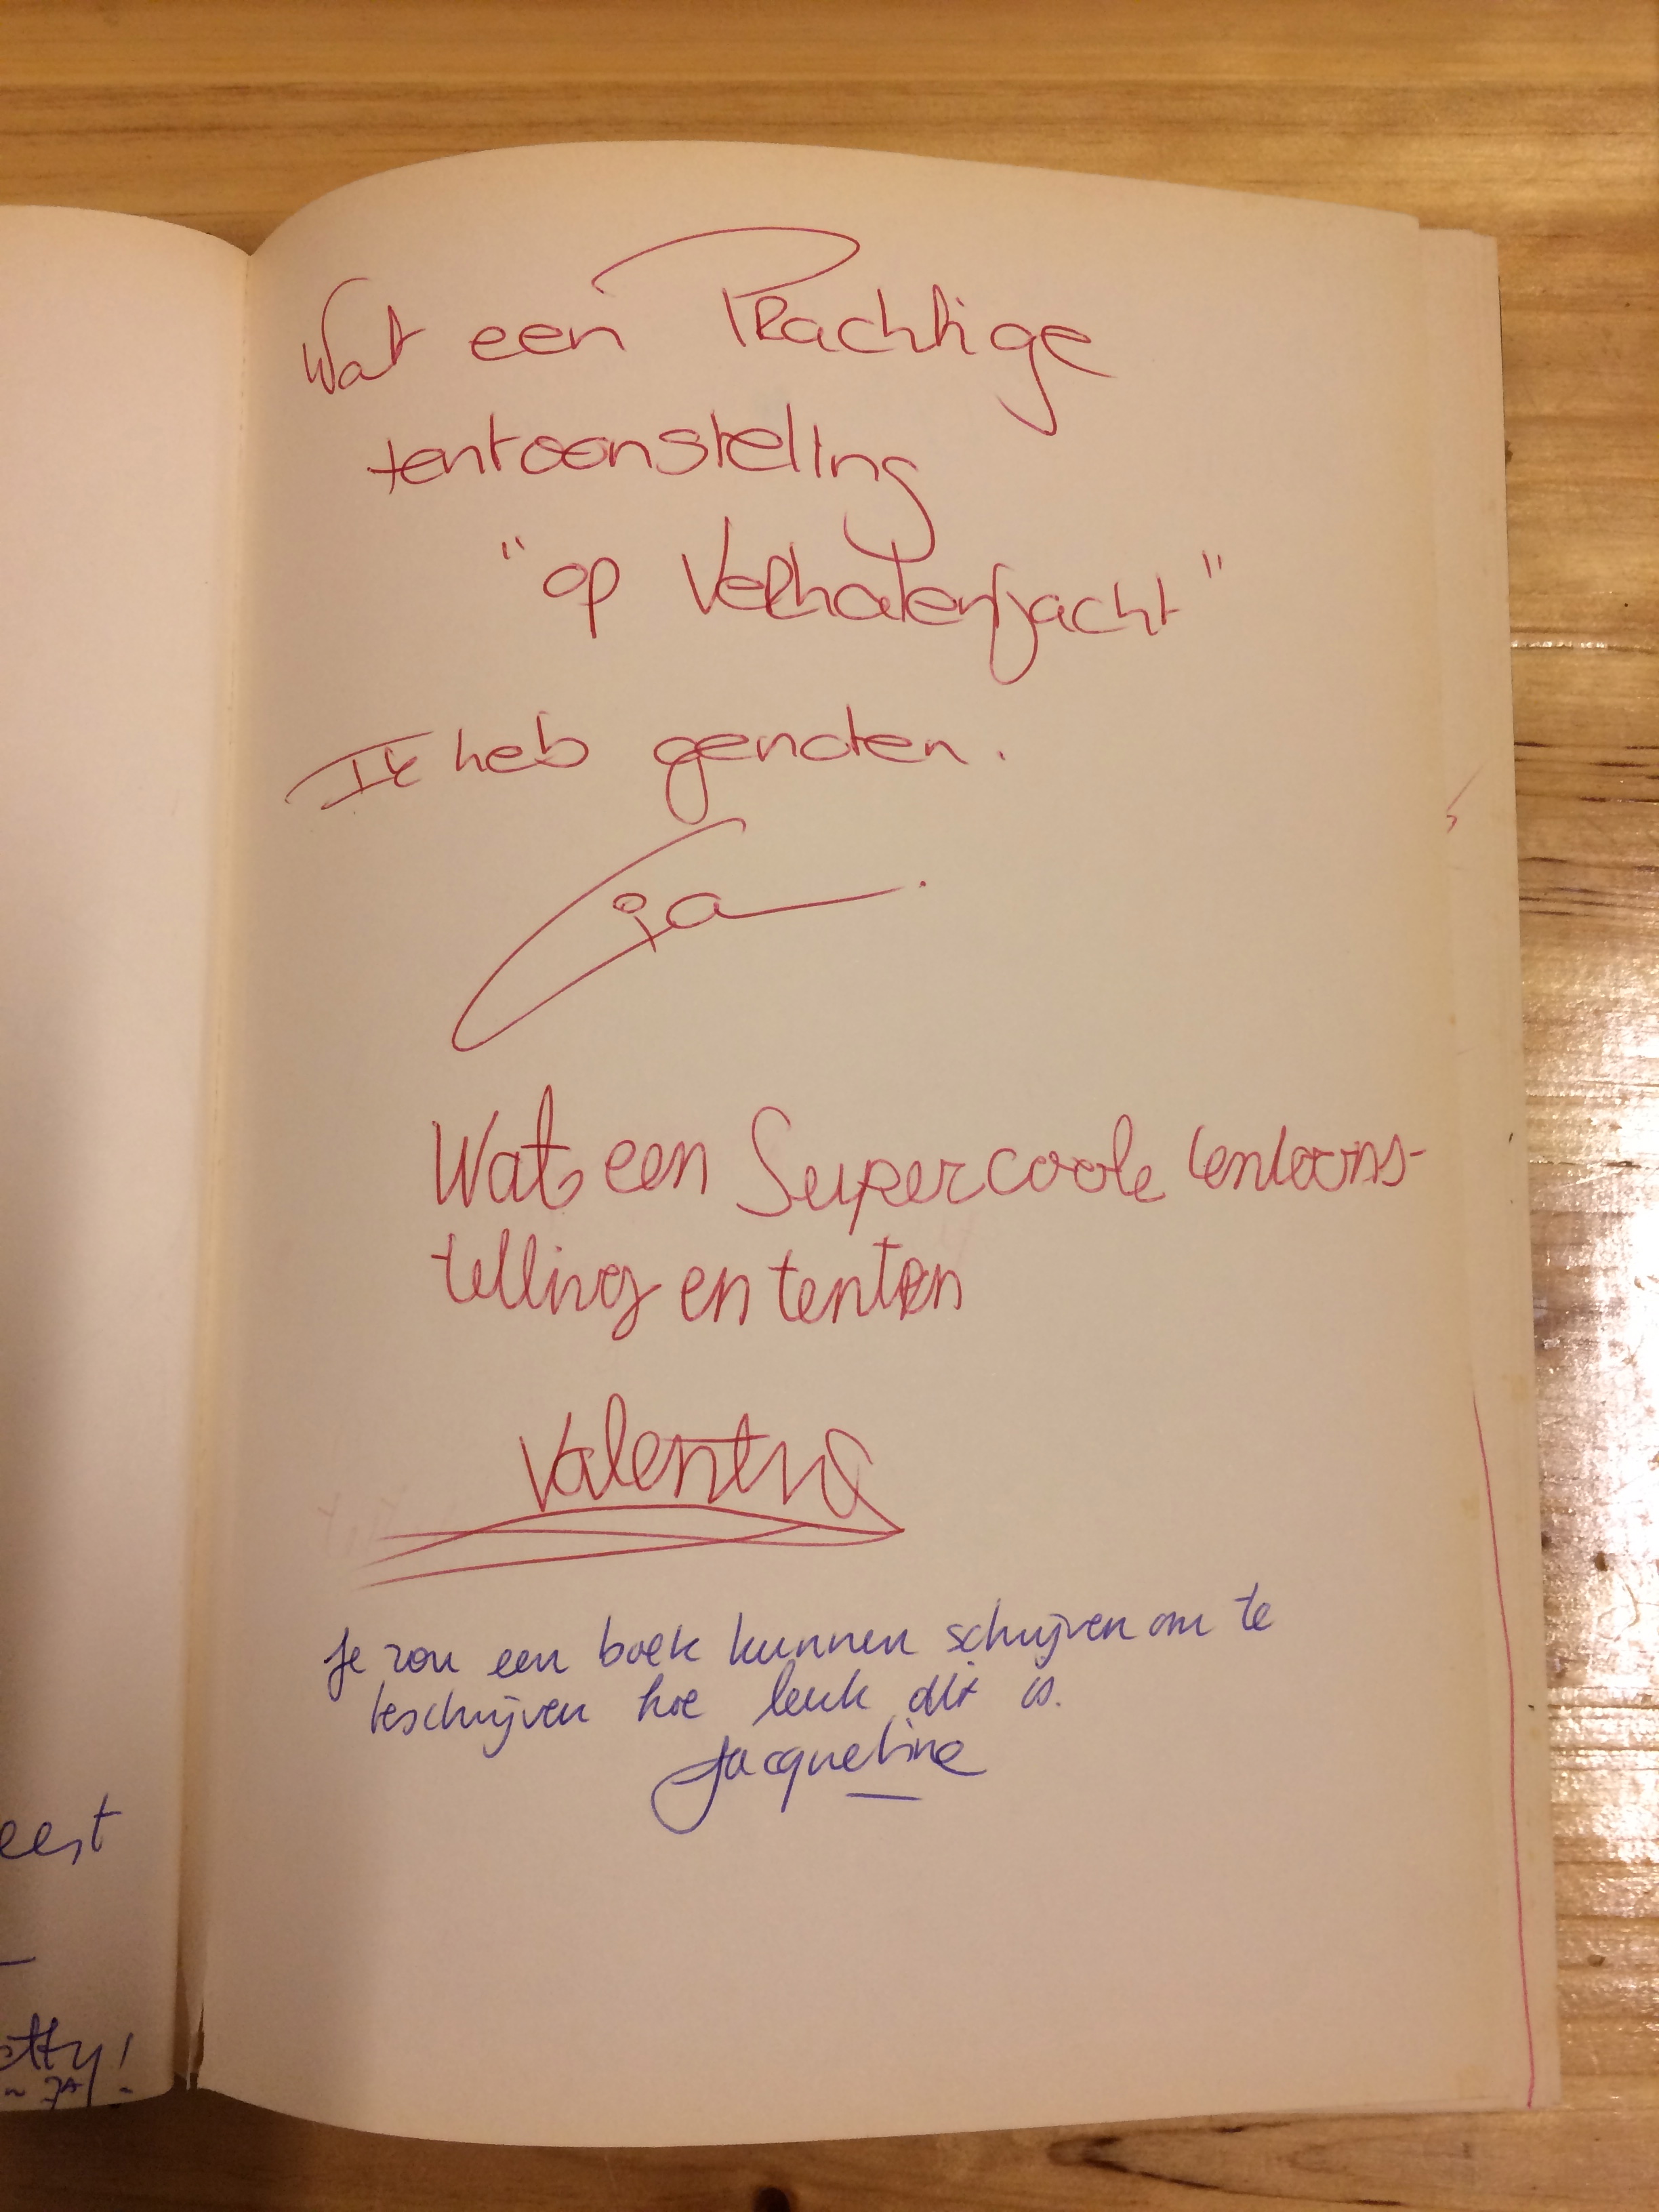 Wat een Prachtige
tentoonstelling
"op Verhalenjacht"
Ik heb genoten.
Wat een Supercoole tentoons-
telling en tenten
Valentina
Je zou een boek kunnen schrijven om te
beschrijven hoe leuk dit is.
Jacqueline
eest
etty!